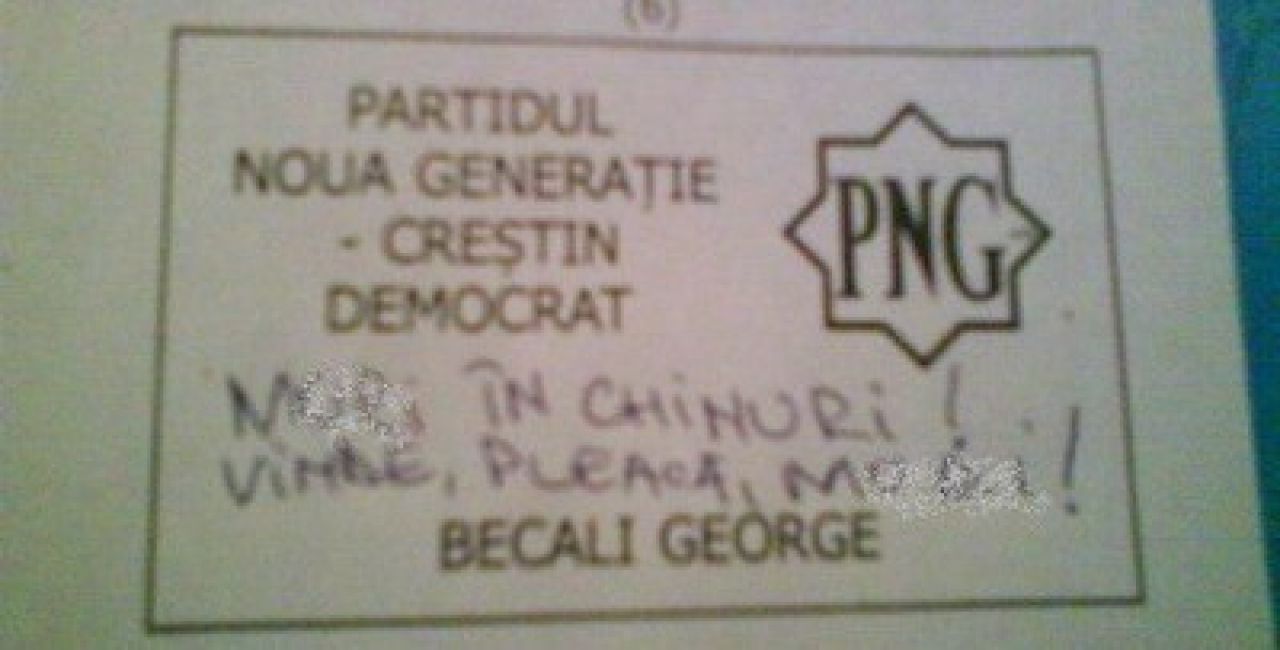 (6)
PARTIDUL
NOUA GENERAȚIE
- CREȘTIN
DEMOCRAT
PNG
ÎN CHINURI!
PLEACA,
BECALI GEORGE